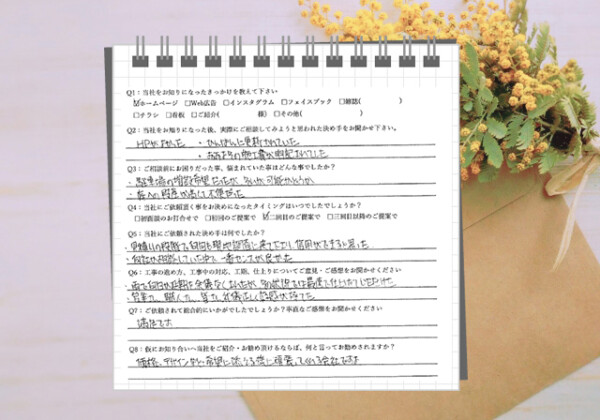 Q1：当社をお知りになったきっかけを教えて下さい
☑ホームページ　□Web広告　□インスタグラム　□フェイスブック　□雑誌(　　　)
□チラシ　□看板　□ご紹介(　　　様)　□その他(　　　)
Q2：当社をお知りになった後、実際にご相談してみようと思われた決め手をお聞かせ下さい。
HPがよかった　・かんぱんに更新されていた
Q3：ご相談前にお困りだった事、悩まれていた事はどんな事でしたか？
・駐車場の増設希望だったが、可能かどうか
Q4：当社にご依頼置く事をお決めになったタイミングはいつでしたでしょうか？
□初面談のお打合せで　□初回のご提案で　☑二回目のご提案で　□三回目以降のご提案で
Q5：当社にご依頼された決め手は何でしたか？
・見積りの段階で何回も現地確認に来てただ信用できると思った
・何社か相談していた中で一番センスが良かった
Q6：工事の進め方、工事中の対応、工期、仕上りについてご意見・ご感想をお聞かせください
・雨で何日か延期を余儀なくされたが
・営業さん、職人さん、皆さん礼儀正しく好感が持てた
Q7：ご依頼されて総合的にいかがでしたでしょうか？率直なご感想をお聞かせください
満足です
Q8：仮にお知り合いへ当社をご紹介・お勧め頂けるならば、何と言ってお勧めされますか？
価格、デザインなど希望に添える様に頑張ってくれる会社ですよ